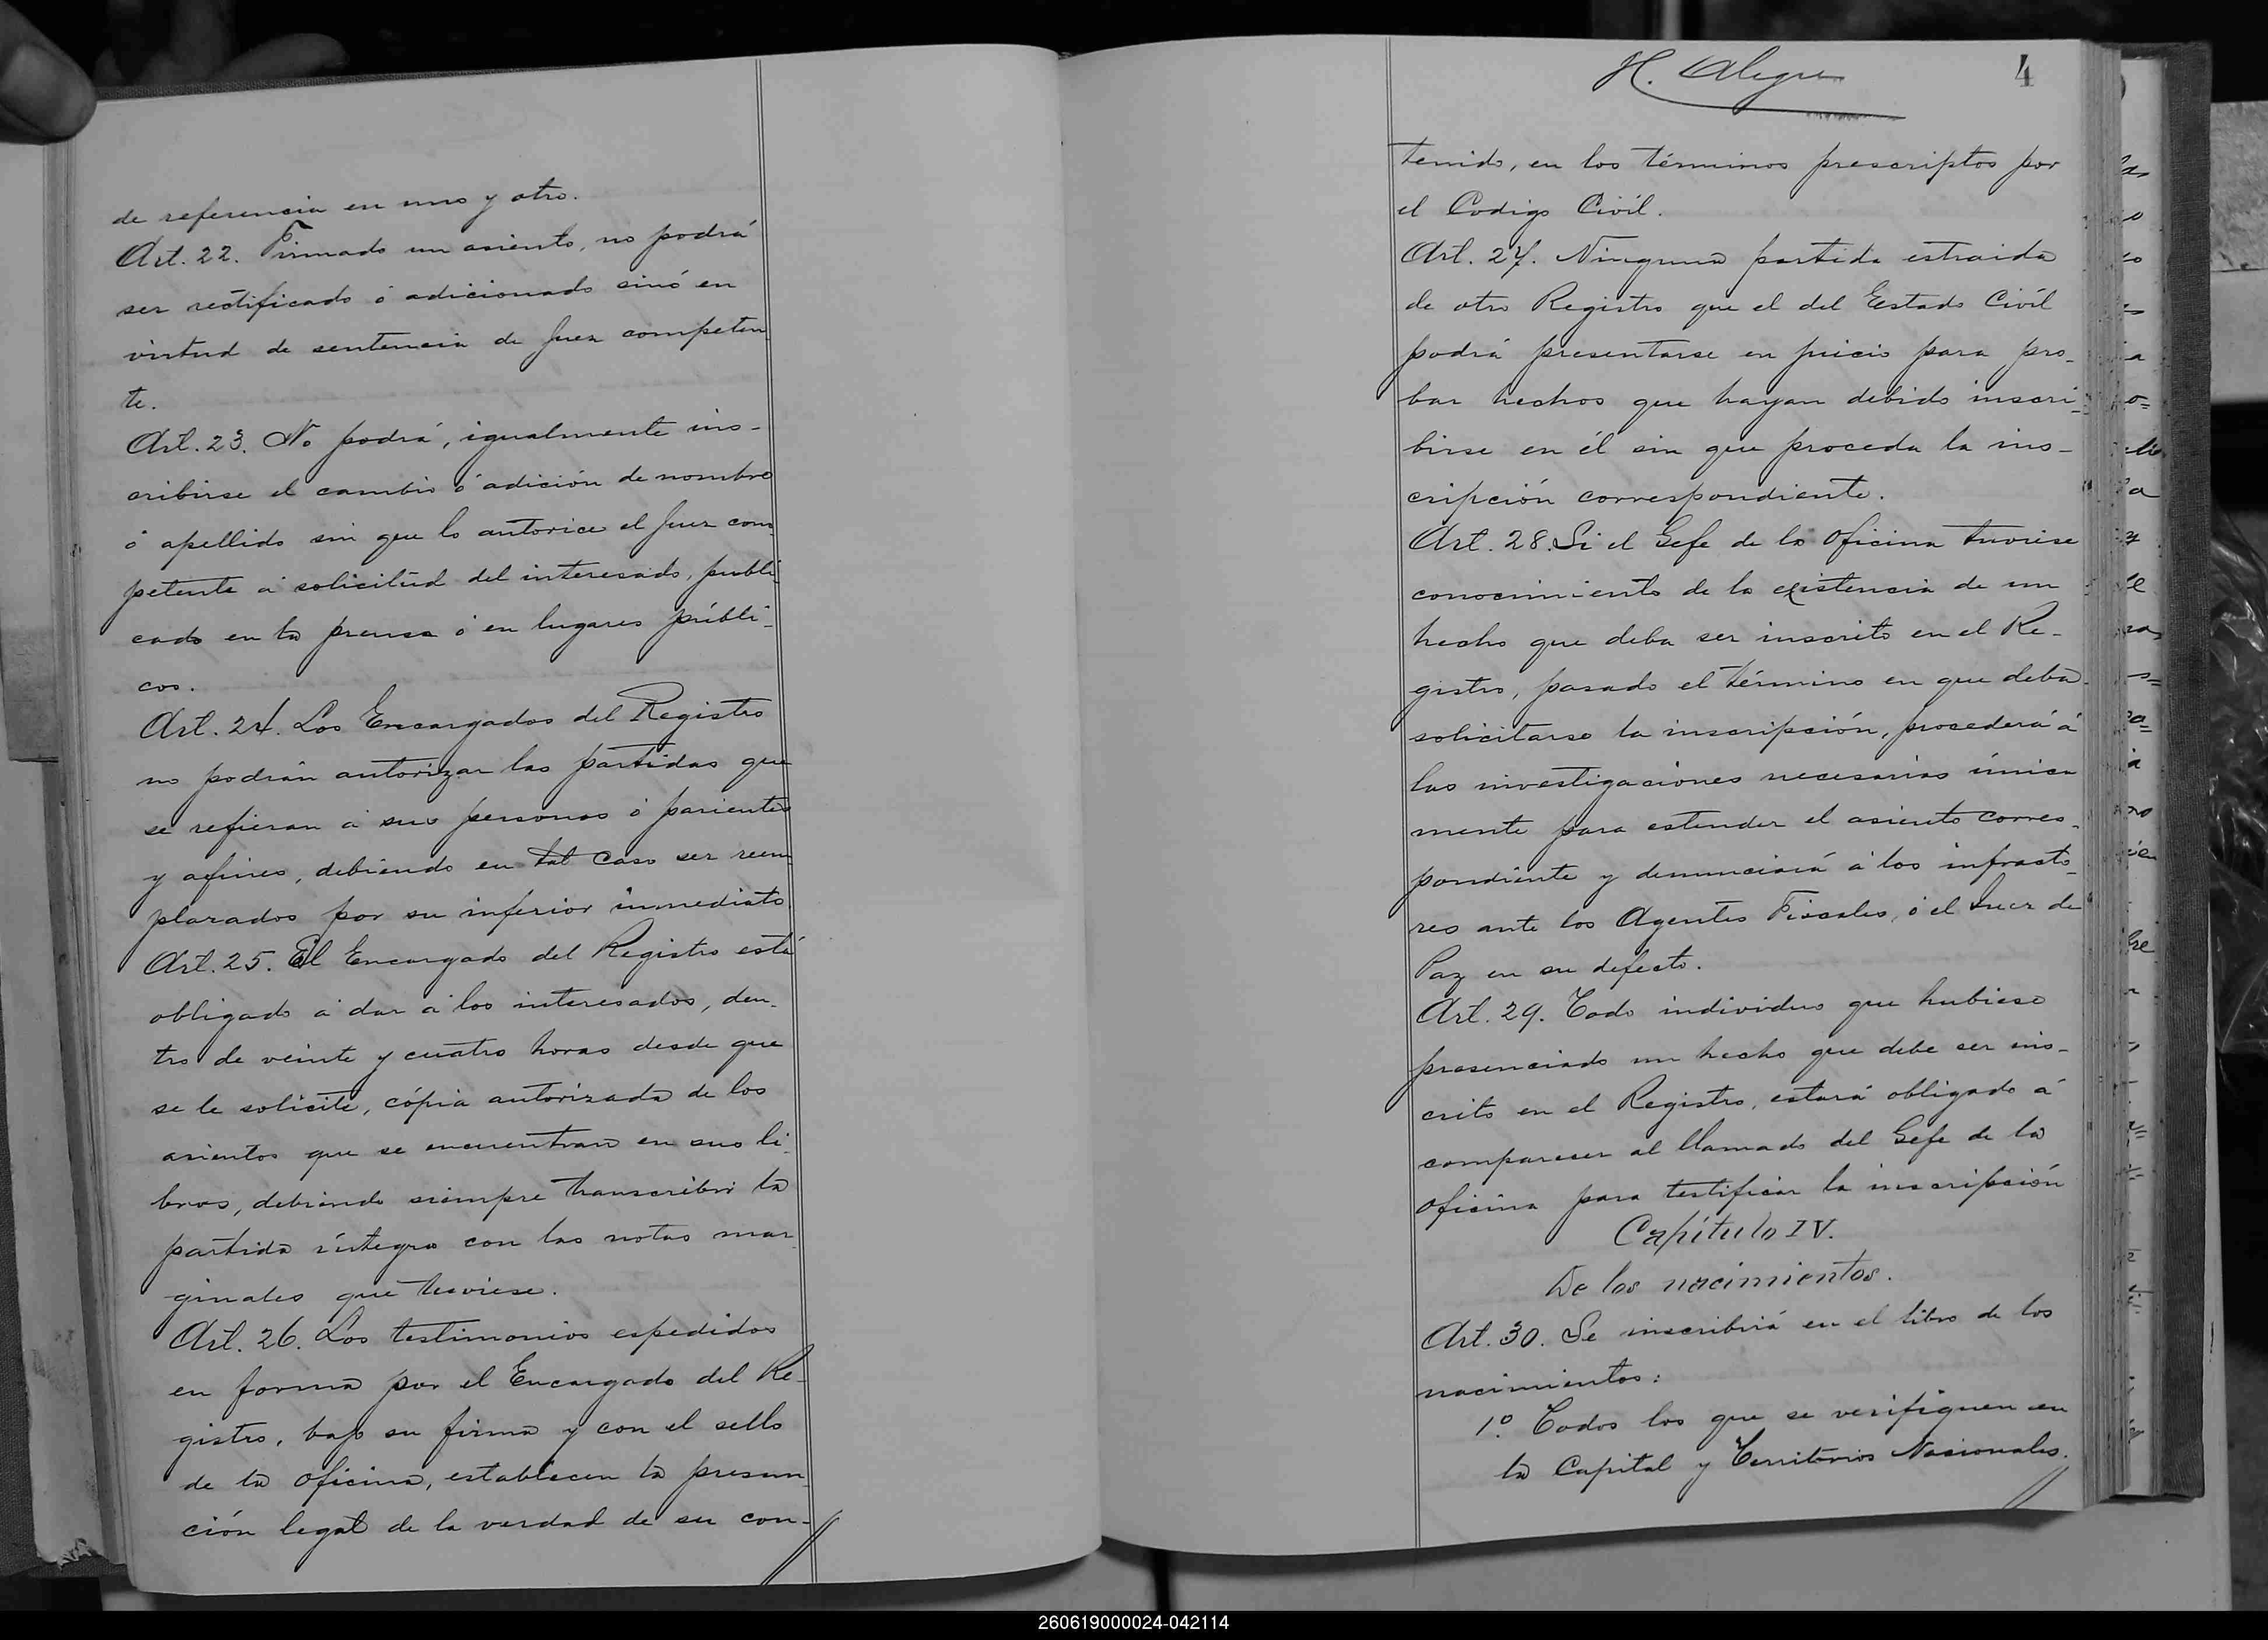 de referencia en uno y otro.
Art. 22. Firmado un asiento, no podrá
ser rectificado ó adicionado sinó en
virtud de sentencia de Juez competen
te.
Art. 23. No podrá, igualmente ins-
cribirse el cambio ó adición de nombre
ó apellido sin que lo autorice el Juez com
petente á solicitud del interesado, publi
cado en la prensa ó en lugares públi-
cos.
Art. 24. Los Encargados del Registro
no podrán autorizar las partidas que
se refieran á sus personas ó parientes
y afines, debiendo en tal caso ser reem
plazados por su inferior inmediato
Art. 25. El Encargado del Registro está
obligado á dar á los interesados, den-
tro de veinte y cuatro horas desde que
se le solicite, cópia autorizada de los
asientos que se encuentran en sus li-
bros, debiendo siempre transcribir la
partida íntegra con las notas mar
ginales que tuviese.
Art. 26. Los testimonios espedidos
en forma por el Encargado del Re-
gistro, bajo su firma y con el sello
de la oficina, establecen la presun
ción legal de la verdad de su con-
H. Alegre
4
tenido, en los términos prescriptos por
el Codigo Civíl.
Art. 27. Ninguna partida estraida
de otro Registro que el del Estado Civíl
podrá presentarse en juicio para pro-
bar hechos que hayan debido inscri-
birse en él sin que proceda la ins-
cripción correspondiente.
Art. 28. Si el Gefe de la Oficina tuviese
conocimiento de la existencia de un
hecho que deba ser inscrito en el Re-
gistro, pasado el término en que deba
solicitarse la inscripción, procederá á
las investigaciones necesarias única
mente para estender el asiento corres-
pondiente y denunciará á los infracto-
res ante los Agentes Fiscales, ó el Juez de
Paz en su defecto.
Art. 29. Todo individuo que hubiese
presenciado un hecho que debe ser ins-
crito en el Registro, estará obligado á
comparecer al llamado del Gefe de la
oficina para testificar la inscripción
Capítulo IV.
De los nacimientos.
Art. 30. Se inscribirá en el libro de los
nacimientos:
1º. Todos los que se verifiquen en
la Capital y Territorios Nacionales.
260619000024-042114